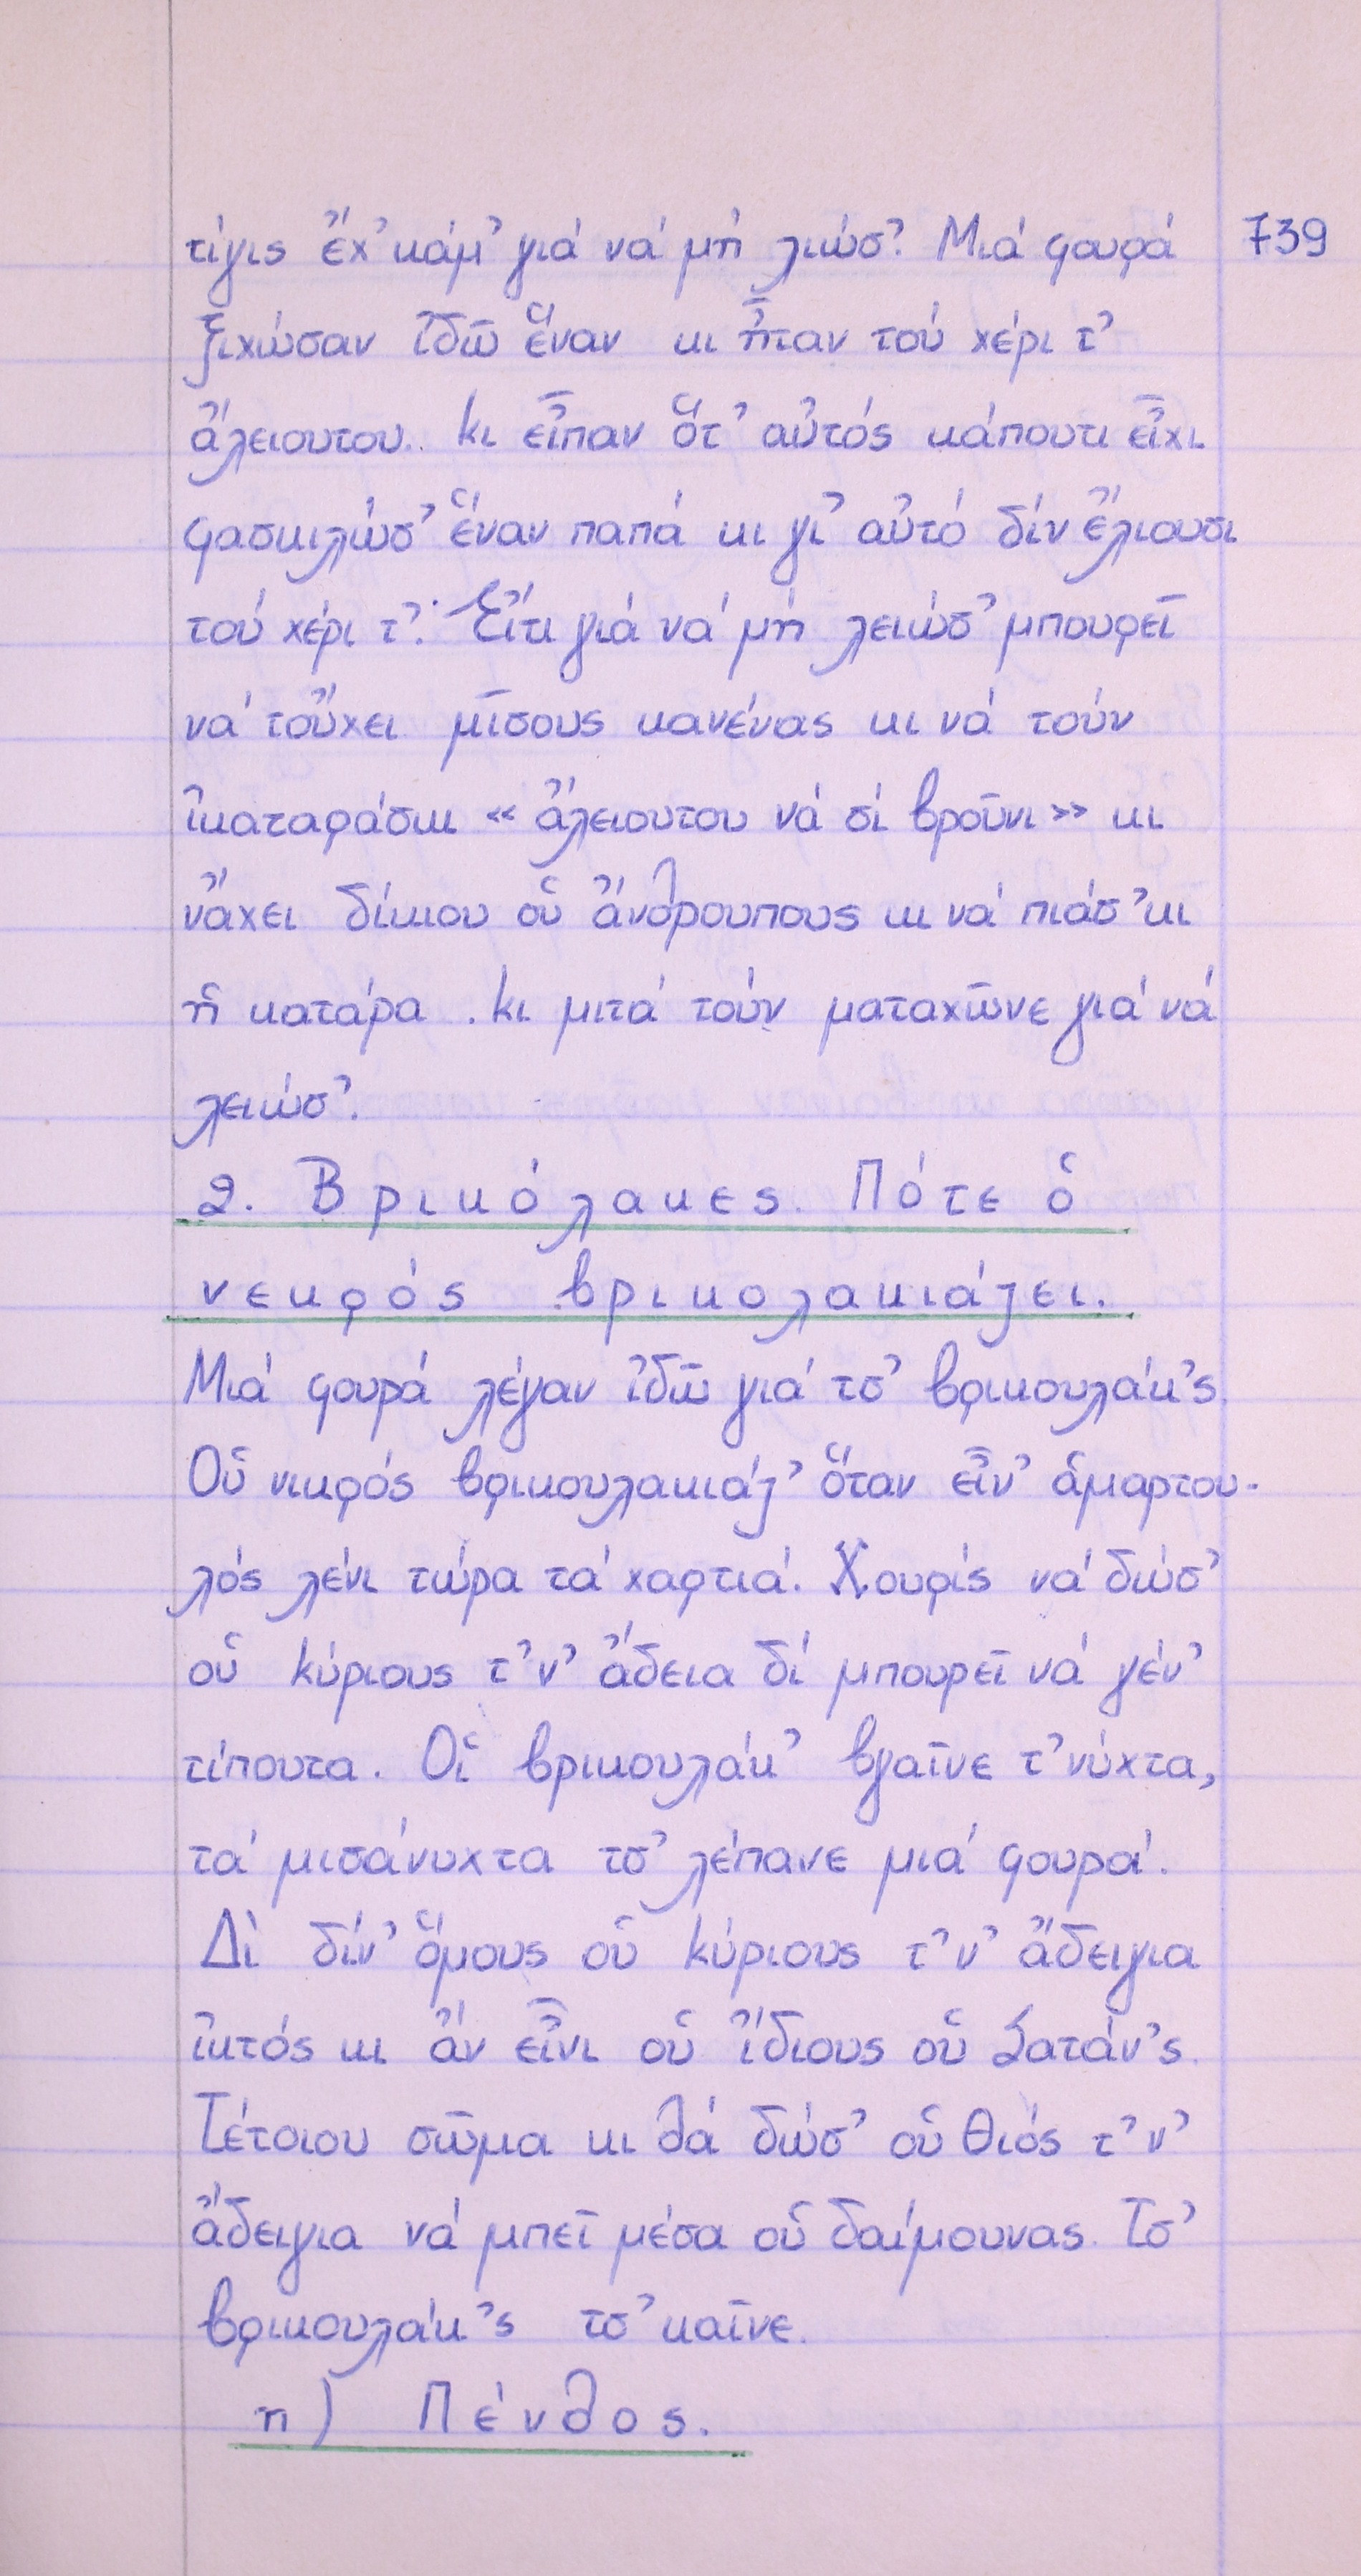 τίγις ἔχ' κάμ' γιά νά μή λιώσ'. Μιά φουρά 739
ξιχώσαν ἰδῶ ἕναν κι ἦταν τού χέρι τ'
ἄλειουτου. κι εἶπαν ὅτ' αὐτός κάπουτι εἶχι
φασκιλώσ' ἕναν παπά κι γι' αὐτό δίν ἔλιουσι
τού χέρι τ'. Εἴτι γιά νά μή λειώσ' μπουρεῖ
νά τοὔχει μῖσους κανένας κι νά τούν
ἰκαταράσκι « ἄλειουτου νά σί βροῦνι » κι
νἄχει δίκιου οὑ ἄνθρουπους κι νά πιάσ'κι
ἡ κατάρα . κι μιτά τούν ματαχῶνε γιά νά
λειώσ'.
2. Βρικόλακες. Πότε ὁ
νεκρός βρικολακιάζει.
Μιά φουρά λέγαν ἰδῶ γιά τσ' βρικουλάκ'ς.
Οὑ νικρός βρικουλακιάζ' ὅταν εἶν' ἁμαρτου-
λός λένι τώρα τά χαρτιά. Χουρίς νά δώσ'
οὑ κύριους τ'ν' ἄδεια δί μπουρεῖ νά γέν'
τίπουτα. Οἱ βρικουλάκ' βγαῖνε τ'νύχτα,
τά μισάνυχτα τσ' λέπανε μιά φουρά.
Δὶ δίν' ὅμους οὑ κύριους τ'ν' ἄδειγια
ἰκτός κι ἄν εἶνι οὑ ἴδιους οὑ Σατάν'ς.
Τέτοιου σῶμα κι θά δώσ' οὑ Θιός τ'ν'
ἄδειγια νά μπεῖ μέσα οὑ δαίμουνας. Τσ'
βρικουλάκ'ς τσ' καῖνε.
η) Πένθος.